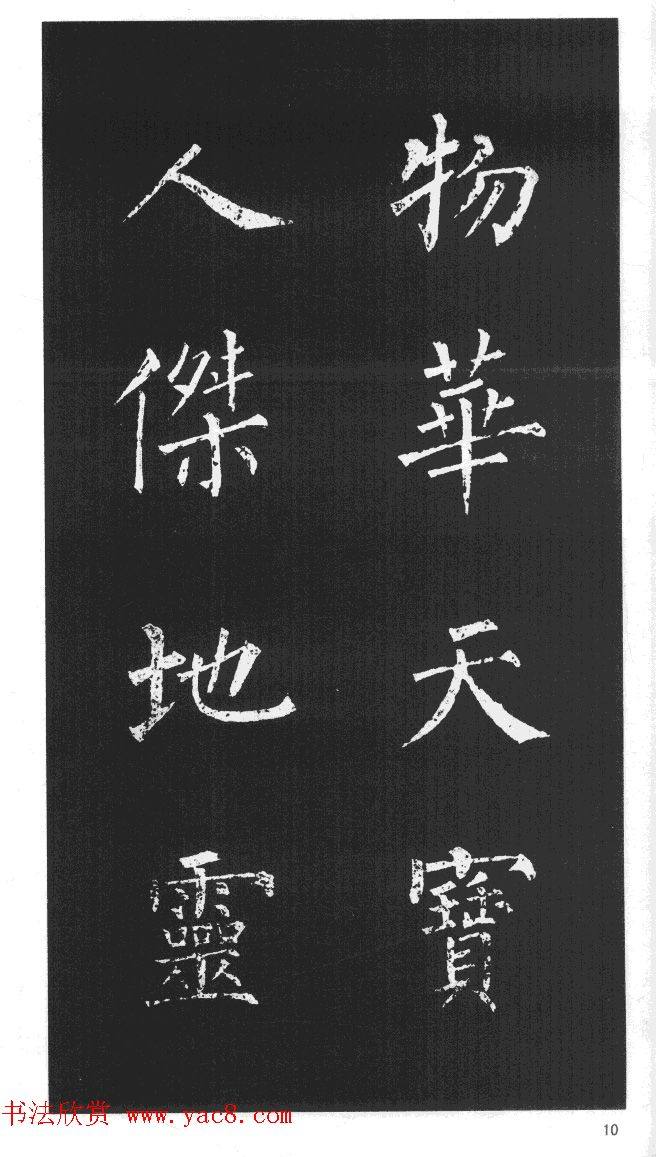 物華天寶
人傑地靈
书法欣赏 www.yac8.com
10